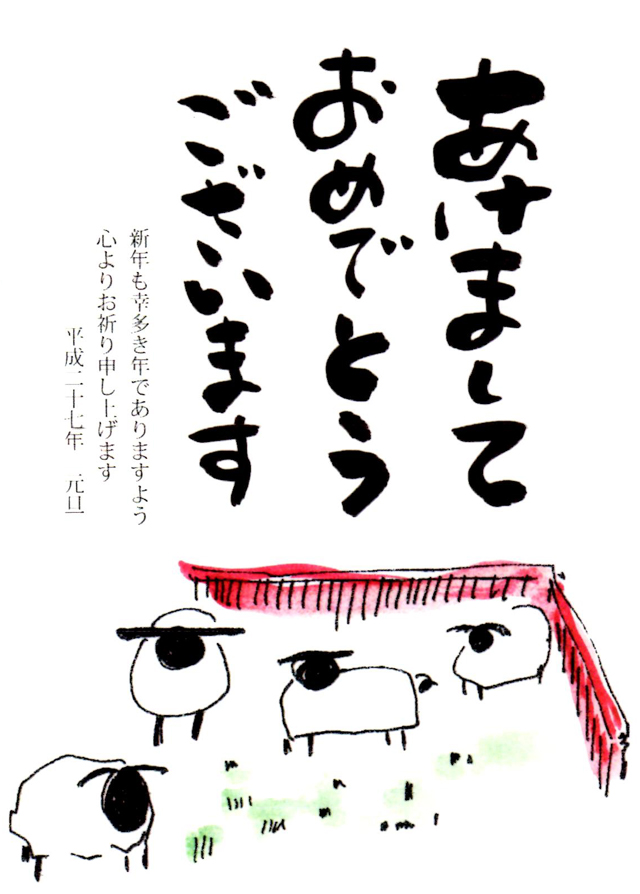 あけまして
おめでとう
ございます
新年も幸多き年でありますよう
心よりお祈り申し上げます
平成二十七年　元旦